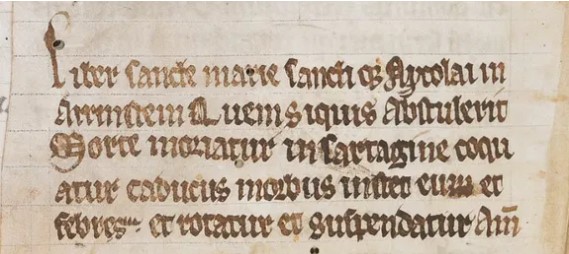 Liber sancte marie sancti qз Nycolai in
Arrinstein Quem siquis Abstulerit
Morte moriatur in sartagine coqu
atur caducus morbus instet eum et
febres et rotatur et suspendatur Am̅